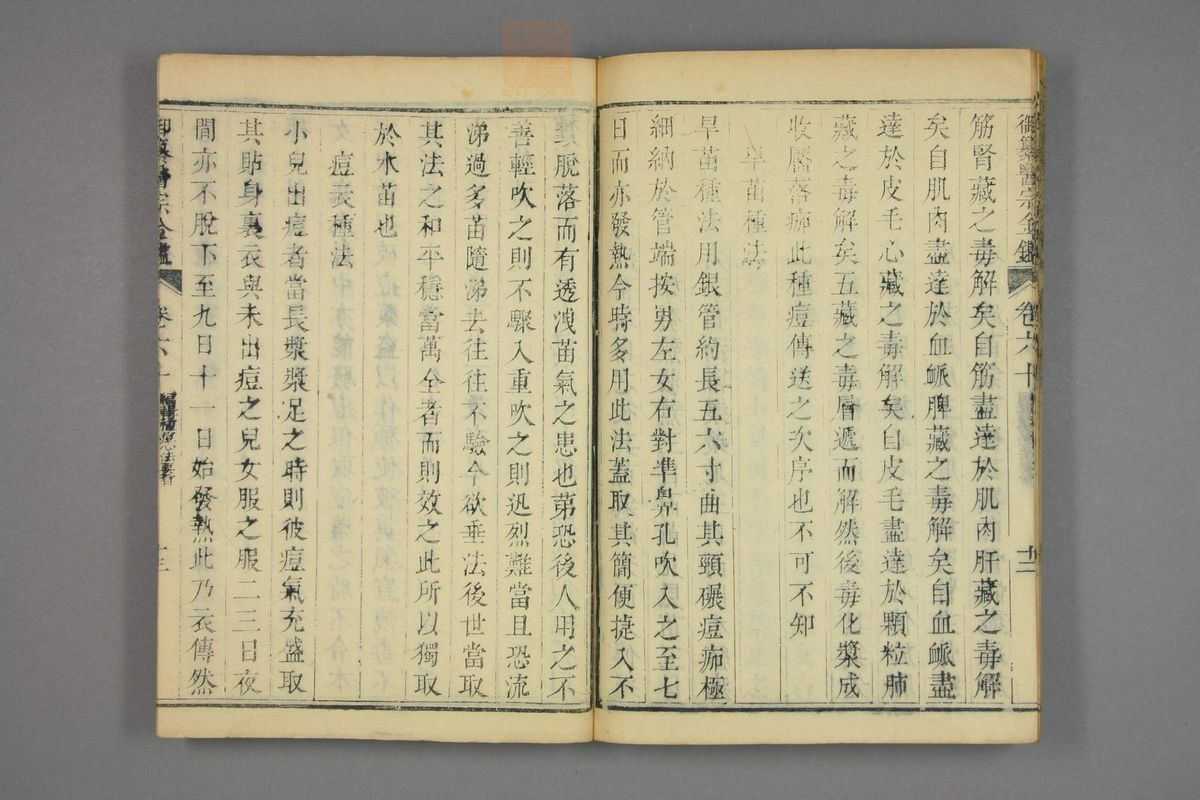 御纂醫宗金鑑 卷六十 十二
筋腎藏之毒解矣自筋盡達於肌肉肝藏之毒解
矣自肌肉盡達於血脈脾藏之毒解矣自血脈盡
達於皮毛心藏之毒解矣自皮毛盡達於顆粒肺
藏之毒解矣五藏之毒層遞而解然後毒化漿成
收靨落痂此種痘傳送之次序也不可不知
旱苗種法
旱苗種法用銀管約長五六寸曲其頸碾痘痂極
細納於管端按男左女右對準鼻孔吹入之至七
日而亦發熱今時多用此法蓋取其簡便捷入不
其脫落而有透洩苗氣之患也第恐後人用之不
善輕吹之則不驟入重吹之則迅烈難當且恐流
涕過多苗隨涕去往往不驗今欲垂法後世當取
其法之和平穩當萬全者而則效之此所以獨取
於水苗也
痘衣種法
小兒出痘者當長漿漿足之時則彼痘氣充盛取
其貼身裏衣與未出痘之兒女服之服二三日夜
間亦不脫下至九日十一日始發熱此乃衣傳然
御纂醫宗金鑑 卷六十 編輯種痘心法要旨 十三